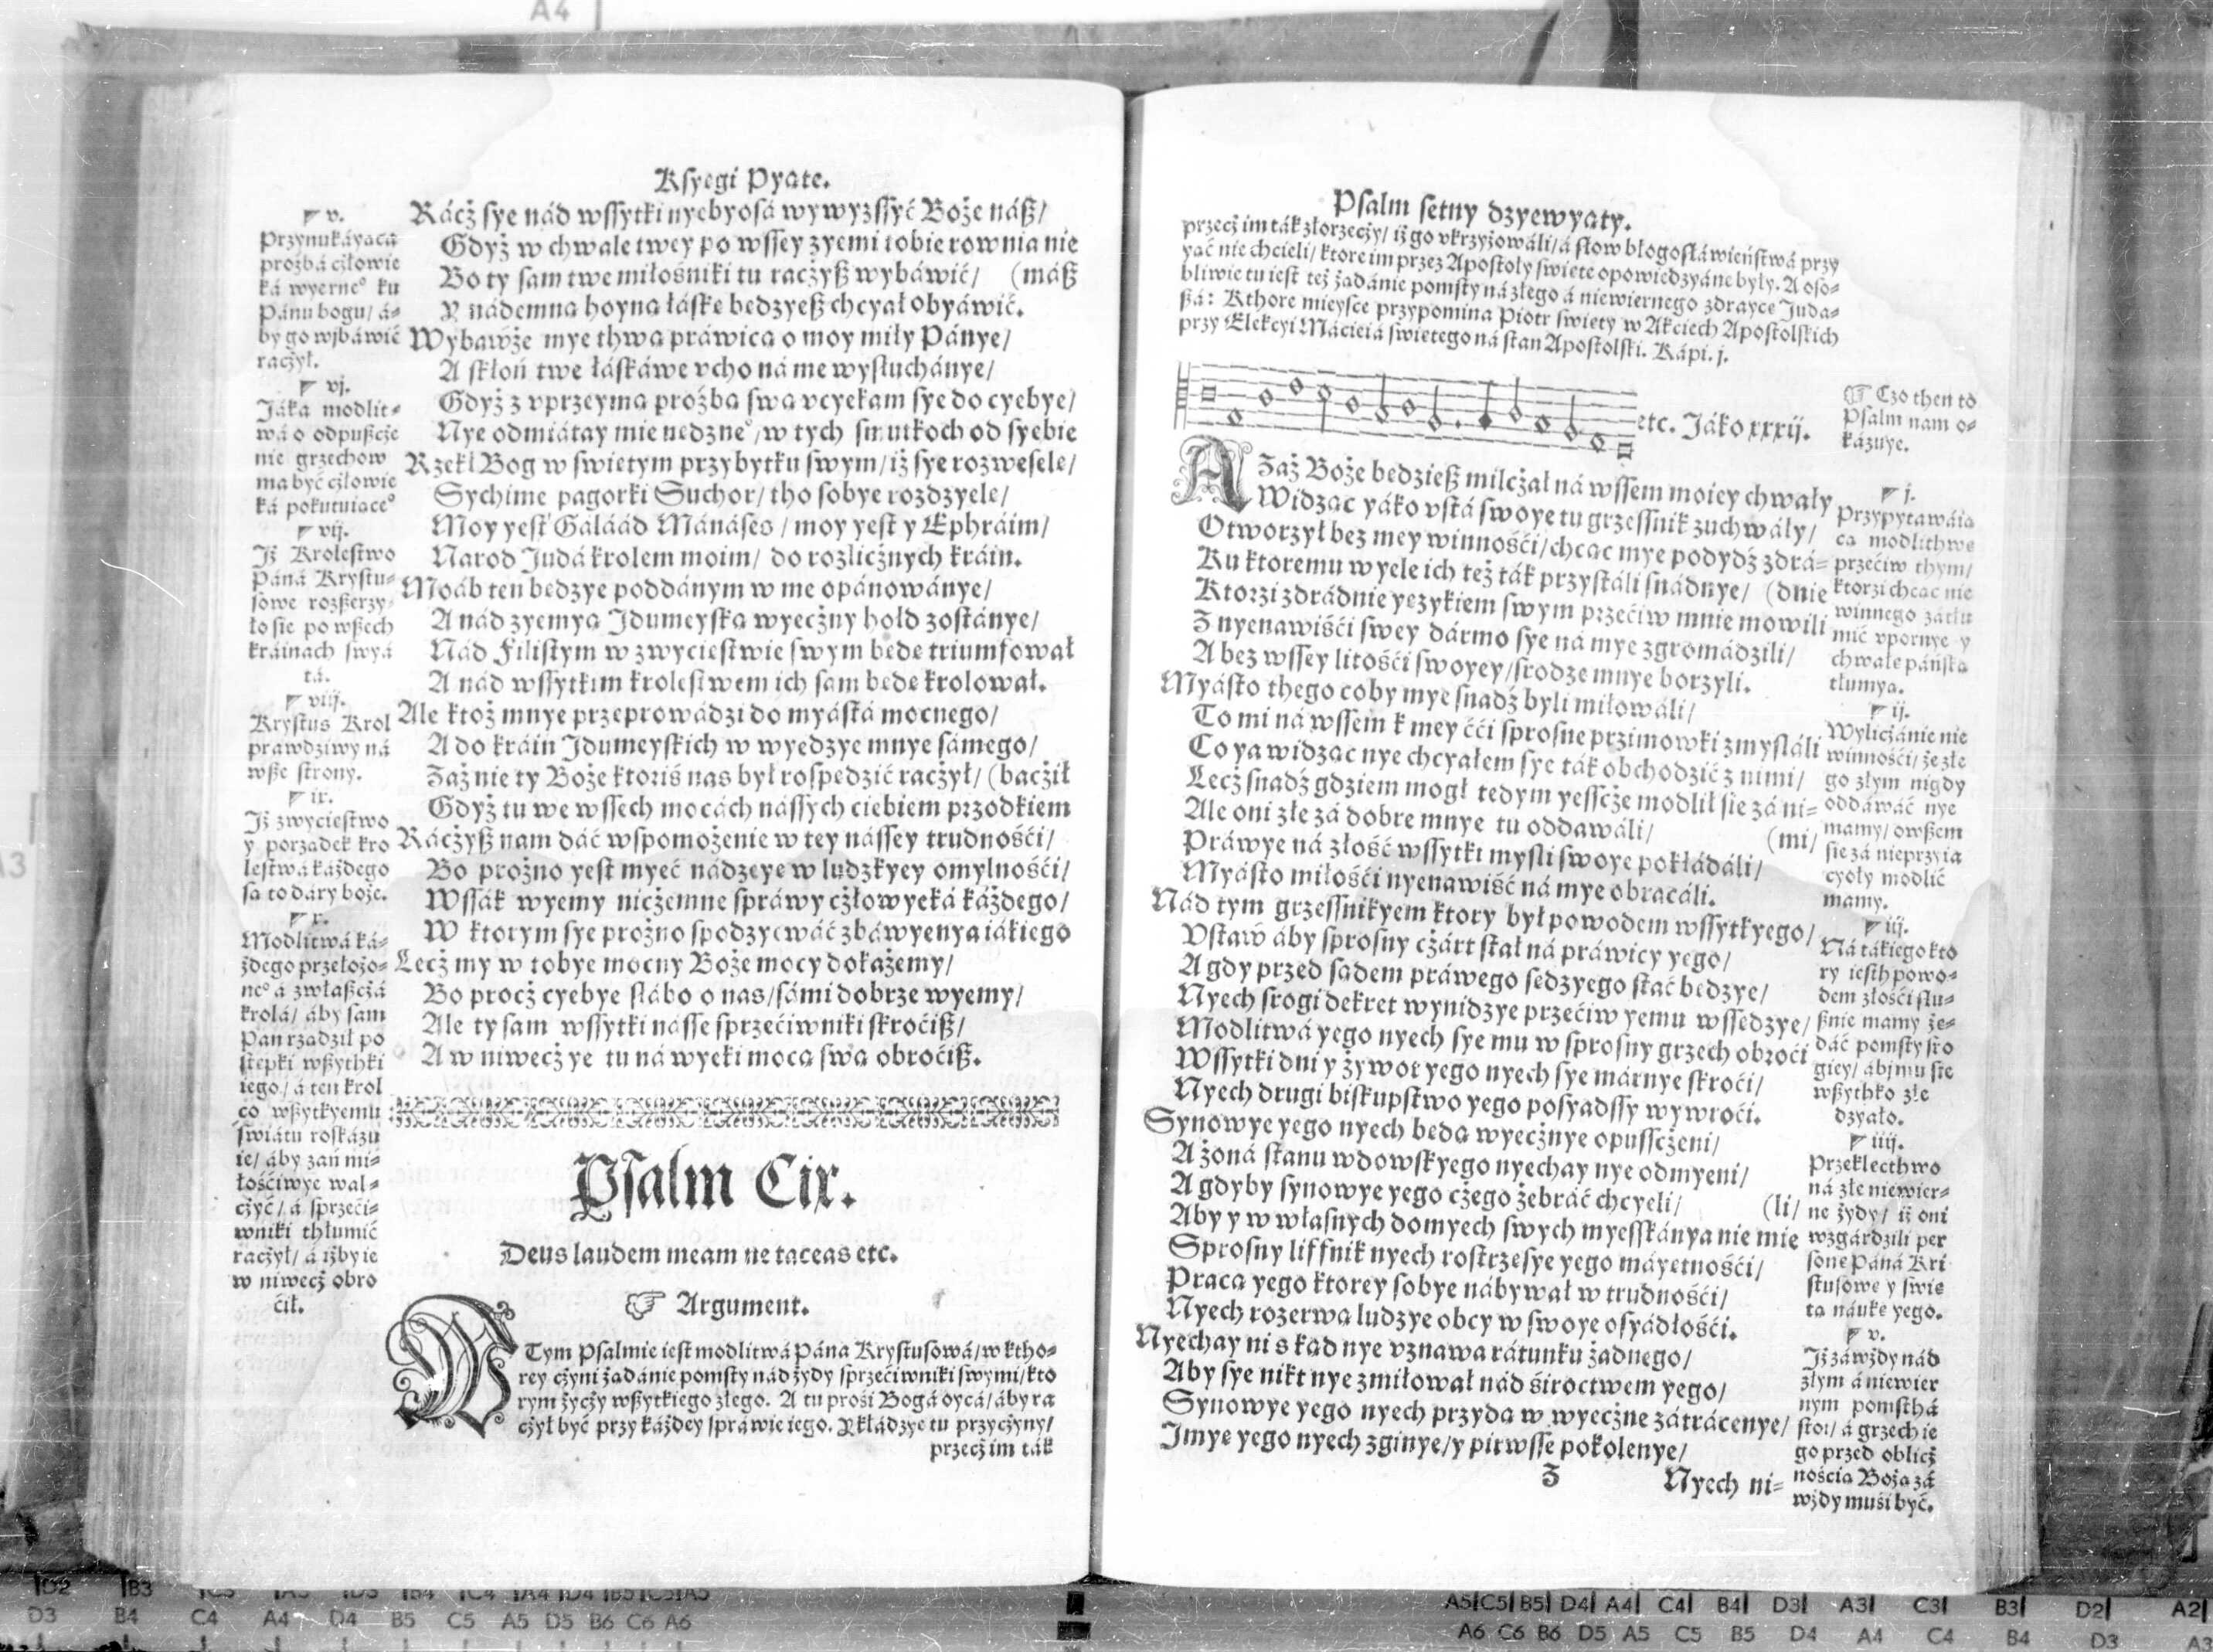 Ksyegi Pyate.
v.
Przynukáyaca
proźbá cżłowie
ká wyerne° ku
Pánu bogu/ á-
by go wybáwić
racżył.
vj.
Jáka modlit-
wá o odpußcże
nie grzechow
ma być cżłowie
ká pokutuiace°
vij.
Jż Krolestwo
Páná Krystu-
sowe rozßerzy
ło sie po wßech
kráinach swyá
tá.
viij.
Krystus Krol
prawdziwy ná
wße strony.
ix.
Jż zwyciestwo
y porzadek kro
lestwá káżdego
sa to dáry boże.
x.
Modlitwá ká-
żdego przełożo-
ne° á zwłaßcżá
krolá/ áby sam
Pan rzadził po
stepki wßythki
iego/ á ten krol
co wßytkyemu
światu roskázu
ie/ áby zań mi-
łośćiwye wal-
cżyć/ á sprzeći-
wniki thłumić
racżył/ á iżby ie
w niwecż obro
ćił.
Rácż sye nád wssytki nyebyosá wywyzssyć Boże náß/
Gdyż w chwale twey po wssey zyemi tobie rownia nie
Bo ty sam twe miłośniki tu racżyß wybáwić/ (máß
Y nádemna hoyna łáske bedzyeß chcyał obyáwić.
Wybawże mye thwa práwica o moy miły Pánye/
A skłoń twe łáskáwe vcho ná me wysłuchánye/
Gdyż z vprzeyma proźba swa vcyekam sye do cyebye/
Nye odmiátay mie nedzne°/ w tych smutkoch od syebie
Rzekł Bog w swietym przybytku swym/ iż sye rozwesele/
Sychime pagorki Suchor/ tho sobye rozdzyele/
Moy yest Gáláád Mánáses / moy yest y Ephráim/
Narod Judá krolem moim/ do rozlicżnych kráin.
Moáb ten bedzye poddánym w me opánowánye/
A nád zyemya Jdumeyska wyecżny hołd zostánye/
Nád Filistym w zwyciestwie swym bede triumfował
A nád wssytkim krolestwem ich sam bede krolował.
Ale ktoż mnye przeprowádzi do myástá mocnego/
A do kráin Jdumeyskich w wyedzye mnye sámego/
Zaż nie ty Boże ktoriś nas był rospedzić racżył/ (bacżił
Gdyż tu we wssech mocách nássych ciebiem przodkiem
Rácżyß nam dáć wspomożenie w tey nássey trudnośći/
Bo prożno yest myeć nádzeye w ludzkyey omylnośći/
Wssák wyemy nicżemne spráwy cżłowyeká káżdego/
W ktorym sye prożno spodzyewáć zbáwyenya iákiego
Lecż my w tobye mocny Boże mocy dokażemy/
Bo procż cyebye słábo o nas/ sámi dobrze wyemy/
Ale ty sam wssytki násse sprzećiwniki skroćiß/
A w niwecż ye tu ná wyeki moca swa obroćiß.
Psalm Cix.
Deus laudem meam ne taceas etc.
Argument.
W Tym Psalmie iest modlitwá Pána Krystusowá/ w ktho-
rey cżyni żadánie pomsty nád żydy sprzećiwniki swymi/ kto
rym życży wßytkiego złego. A tu prośi Bogá oycá/ áby ra
cżył być przy káżdey spráwie iego. Wkładzye tu przycżyny/
przecż im ták
Psalm setny dzyewyaty.
przecż im ták złorzecży/ iż go vkrzyżowáli/ á słow błogosłáwieństwá przy
yać nie chcieli/ ktore im przez Apostoły swiete opowiedzyáne były. A oso-
bliwie tu iest też żadánie pomsty ná złego á niewiernego zdrayce Juda-
ßá: Kthore mieysce przypomina Piotr swiety w Akciech Apostolskich
przy Elekcyi Máćieiá swietego ná stan Apostolski. Kápi. j.
etc. Jáko xxxij.
AZaż Boże bedzieß milcżał ná wssem moiey chwały
Widzac yáko vstá swoye tu grzessnik zuchwáły/
Otworzył bez mey winnośći/ chcac mye podydź zdrá-
Ku ktoremu wyele ich też ták przystáli snádnye/ (dnie
Ktorzi zdrádnie yezykiem swym przećiw mnie mowili
Z nyenawiśći swey dármo sye ná mye zgromádzili/
A bez wssey litośći swoyey/ srodze mnye borzyli.
Myásto thego coby mye snadź byli miłowáli/
To mi ná wssem k mey ćći sprosne przimowki zmysláli
Co ya widzac nye chcyałem sye ták obchodzić z nimi/
Lecż snadź gdziem mogł tedym yesscże modlił sie zá ni-
Ale oni złe zá dobre mnye tu oddawáli/ (mi/
Práwye ná złość wssytki mysli swoye pokłádáli/
Myásto miłośći nyenawiść ná mye obracáli.
Nád tym grzessnikyem ktory był powodem wssytkyego/
Vstaw áby sprosny cżárt stał ná práwicy yego/
A gdy przed sadem práwego sedzyego stać bedzye/
Nyech srogi dekret wynidzye przećiw yemu wssedzye/
Modlitwá yego nyech sye mu w sprosny grzech obroći
Wssytki dni y żywot yego nyech sye márnye skroći/
Nyech drugi biskupstwo yego posyadssy wywroći.
Synowye yego nyech beda wyecżnye opusscżeni/
A żoná stanu wdowskyego nyechay nye odmyeni/
A gdyby synowye yego cżego żebráć chcyeli/ (li/
Aby y w własnych domyech swych myesskánya nie mie
Sprosny liffnik nyech rostrzesye yego máyetnośći/
Praca yego ktorey sobye nábywał w trudnośći/
Nyech rozerwa ludzye obcy w swoye osyádłośći.
Nyechay ni s kad nye vznawa rátunku żadnego/
Aby sye nikt nye zmiłował nád śiroctwem yego/
Synowye yego nyech przyda w wyecżne zátrácenye/
Jmye yego nyech zginye/ y pirwsse pokolenye/
Z
Nyech ni-
Czo then to
Psalm nam o-
kázuye.
j.
Przypytawáia
ca modlithwe
przećiw thym/
ktorzi chcac nie
winnego zátłu
mić vpornye y
chwałe páńska
tłumya.
ij.
Wylicżánie nie
winnośći/ że złe
go złym nigdy
oddáwáć nye
mamy/ owßem
sie zá nieprzyia
cyoły modlić
mamy.
iij.
Ná tákiego kto
ry iesth powo-
dem złośći słu-
ßnie mamy że-
dáć pomsty sro
giey/ áby mu sie
wßythko złe
dzyało.
iiij.
Przeklecthwo
ná złe niewier-
ne żydy/ iż oni
wzgárdzili per
sone Páná Kri
stusowe y swie
ta náuke yego.
v.
Jż záwżdy nád
złym á niewier
nym pomsthá
stoi/ á grzech ie
go przed oblicż
nościa Boża zá
wżdy muśi być.